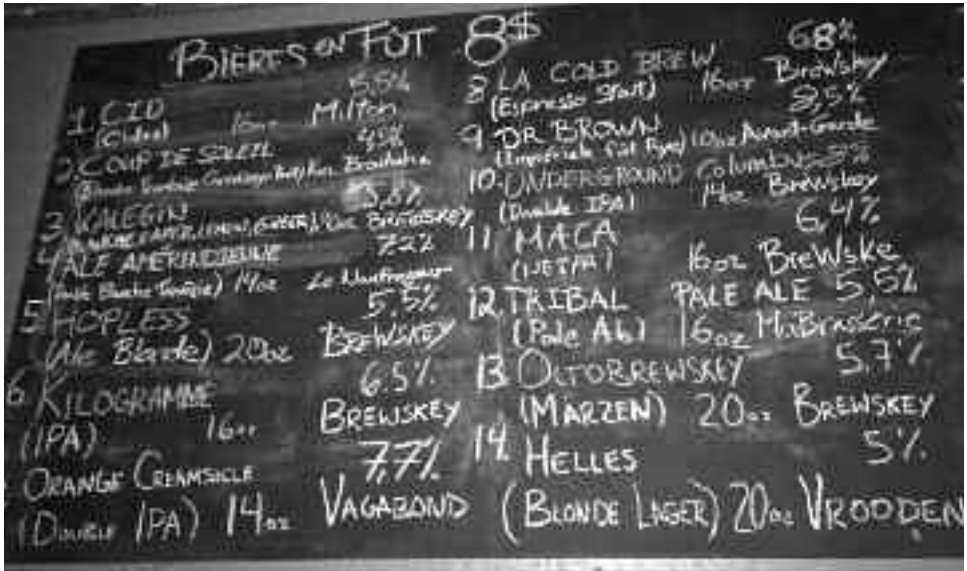 BIÈRES EN FÛT 8$
1. CID 6.8%
16oz Milton
2. COUP DE SOLEIL 4.5%
3.8%
BREWSKEY
4. ALE AMÉRINDIENNE 7.22
14oz Le Naufrageur
5. HOPLESS 5.5%
(Ale Blonde) 20oz BREWSKEY
6. KILOGRAMME 6.5%
(IPA) 16oz BREWSKEY
ORANGE CREAMSICLE 7.7%
(DOUBLE IPA) 14oz VAGABOND
8. LA COLD BREW 6.8%
(Espresso Stout) 16oz Brewskey
9. DR BROWN 9,5%
10oz Avant-Garde
10. UNDERGROUND Columbus
(Double IPA) 14oz Brewskey
11. MACA 6,4%
(NEIPA) 16oz Brewske
12. TRIBAL PALE ALE 5,5%
(Pale Ale) 16oz MaBrasserie
13. OCTOBREWSKEY 5.7%
(MARZEN) 20oz BREWSKEY
14. HELLES 5%
(BLONDE LAGER) 20oz VROODEN